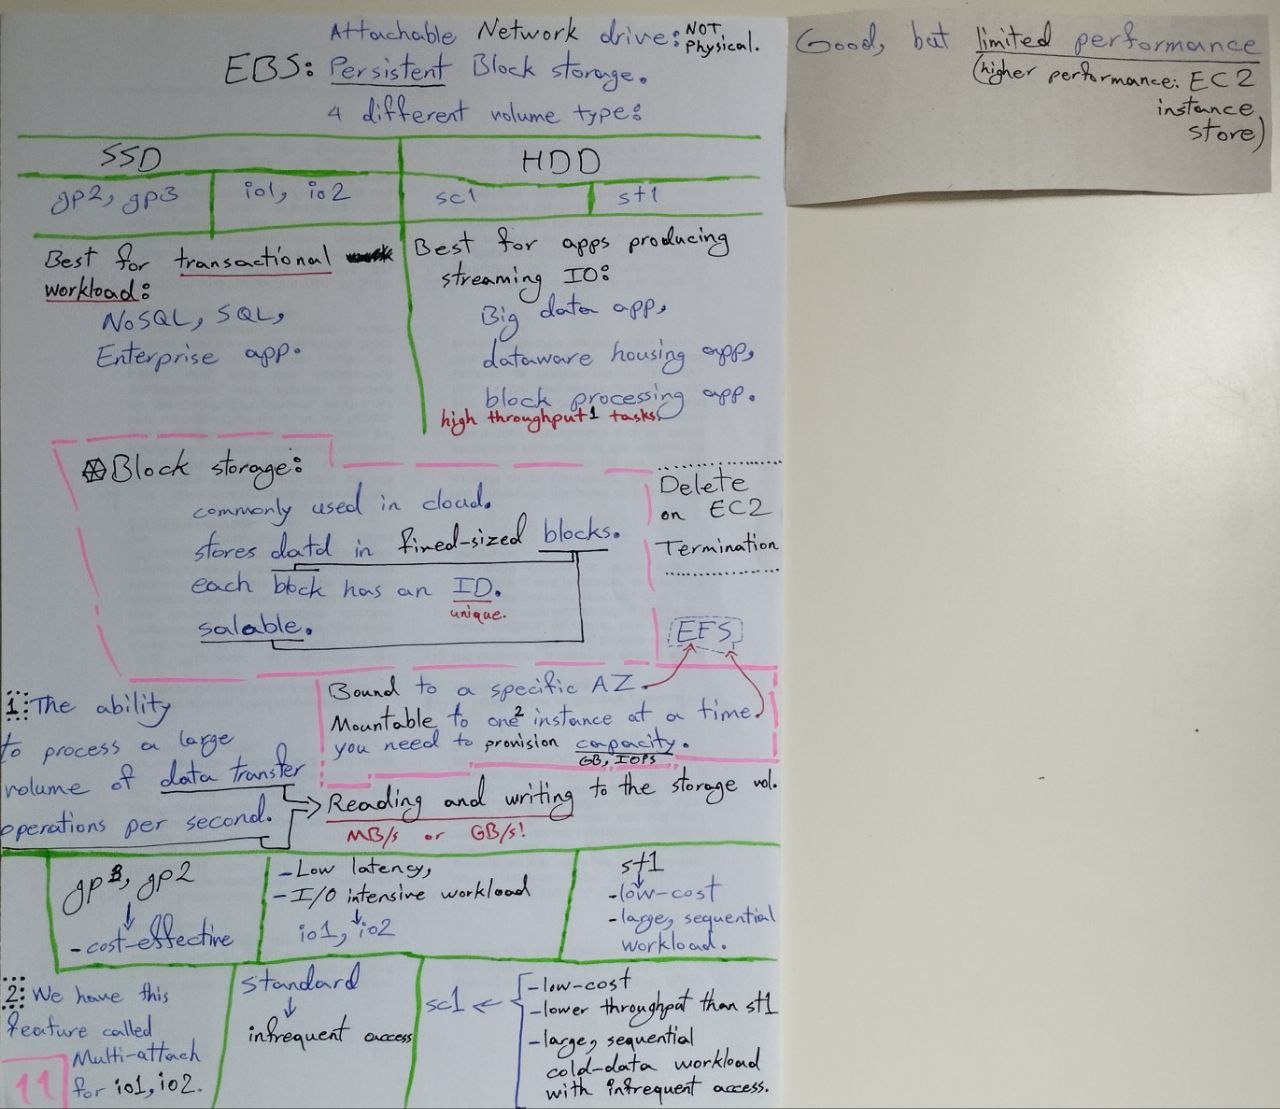 Attachable Network drive: NOT Physical.
EBS: Persistent Block storage.
4 different volume type:
Good, but limited performance
(higher performance: EC2
instance
store)
SSD
HDD
gp2, gp3
io1, io2
sc1
st1
Best for transactional
workload:
NoSQL, SQL,
Enterprise app.
Best for apps producing
streaming IO:
Big data app,
dataware housing app,
block processing app.
high throughput1 tasks.
Block storage:
commonly used in cloud.
stores datd in fired-sized blocks.
each block has an ID.
unique.
salable.
Delete
on EC2
Termination
EFS
Bound to a specific AZ.
Mountable to one2 instance at a time.
you need to provision capacity.
GB, IOPS
1: The ability
to process a large
volume of data transfer
operations per second.
Reading and writing to the storage vol.
MB/s or GB/s!
gp3, gp2
-cost-effective
-Low latency,
-I/O intensive workload
io1, io2
st1
-low-cost
-large, sequential
workload.
2: We have this
feature called
Multi-attach
for io1, io2.
11
standard
infrequent access
sc1
-low-cost
-lower throughput than st1
-large, sequential
cold-data workload
with infrequent access.